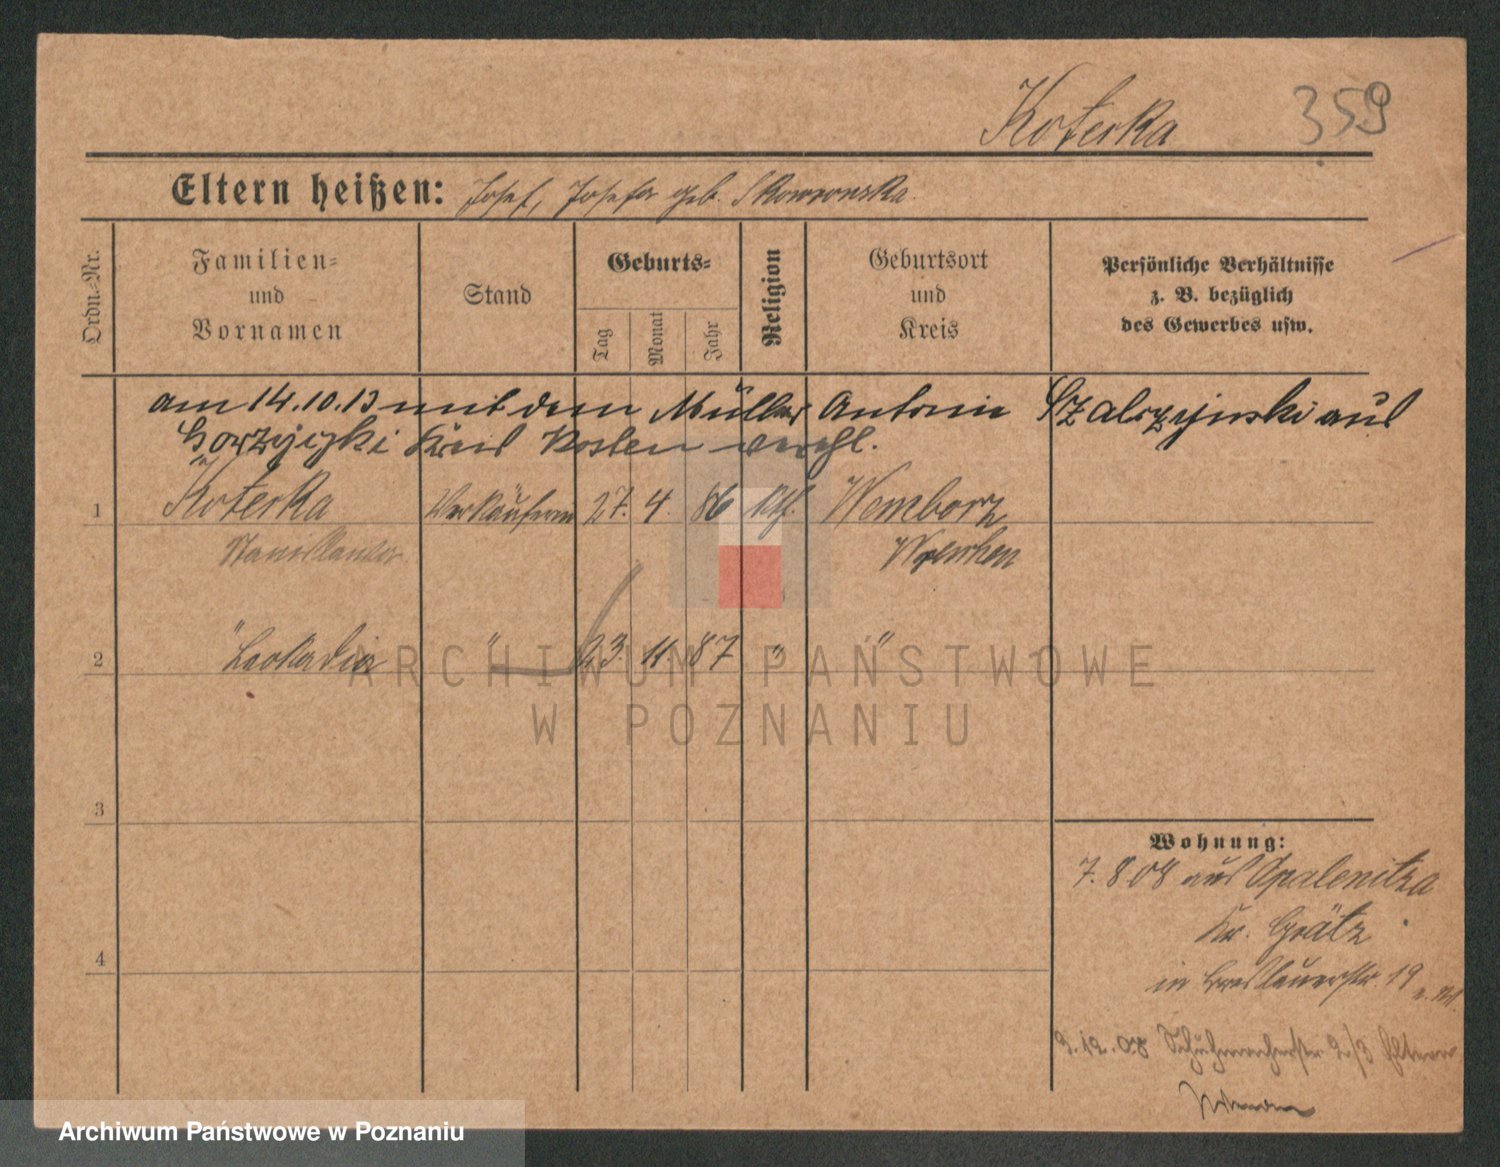 Koterka 359
Eltern heißen: Josef, Josefa geb. Skowronska.
Ordn.-Nr.
Familien-
und
Vornamen
Stand
Geburts-
Tag
Monat
Jahr
Religion
Geburtsort
und
Kreis
Persönliche Verhältnisse
z. B. bezüglich
des Gewerbes usw.
am 14.10.13 mit dem Müller Antonie aus
Kreis Kosten verehl.
1 Koterka Verkäuferin 27. 4. 86 kth. Wemborz
Stanislawa Wreschen
2 " Leokadia " 23. 11. 87 " "
3
4
Wohnung:
7.8.08 aus Opalenitza
Kr. Grätz
in Breslauerstr. 19
9.12.08 Schuhmacherstr. 2/3 Eltern
ARCHIWUM PAŃSTWOWE
W POZNANIU
Archiwum Państwowe w Poznaniu